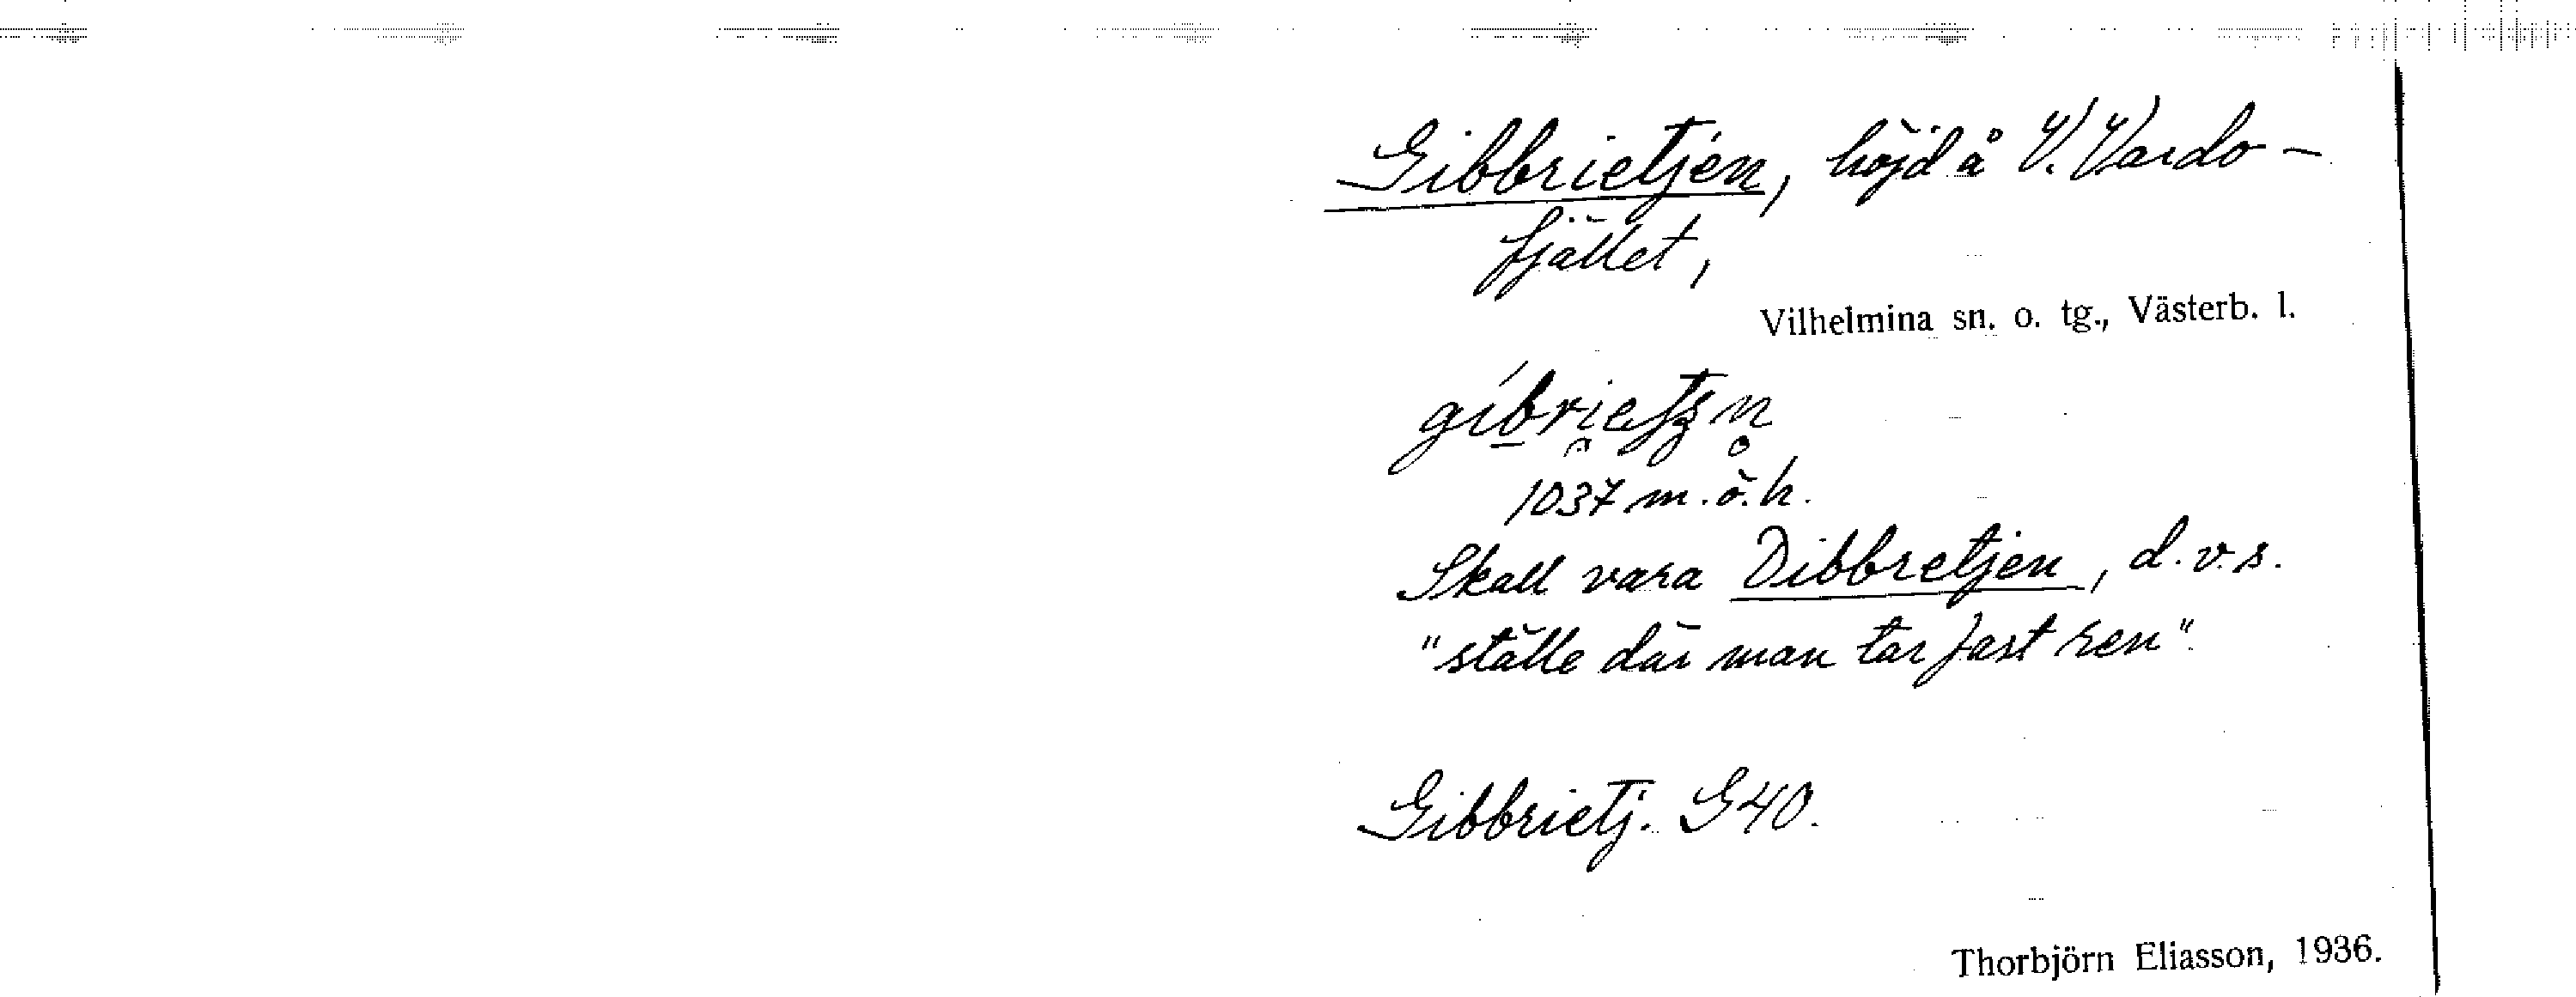 Gibbrietjen, höjd å V. Vardo-
fjället,
Vilhelmina sn. o. tg., Västerb. l.
1037 m.ö.h.
Skall vara Dibbretjen, d.v.s.
"ställe där man tar fast ren".
Gibbrietj. G40.
Thorbjörn Eliasson, 1936.